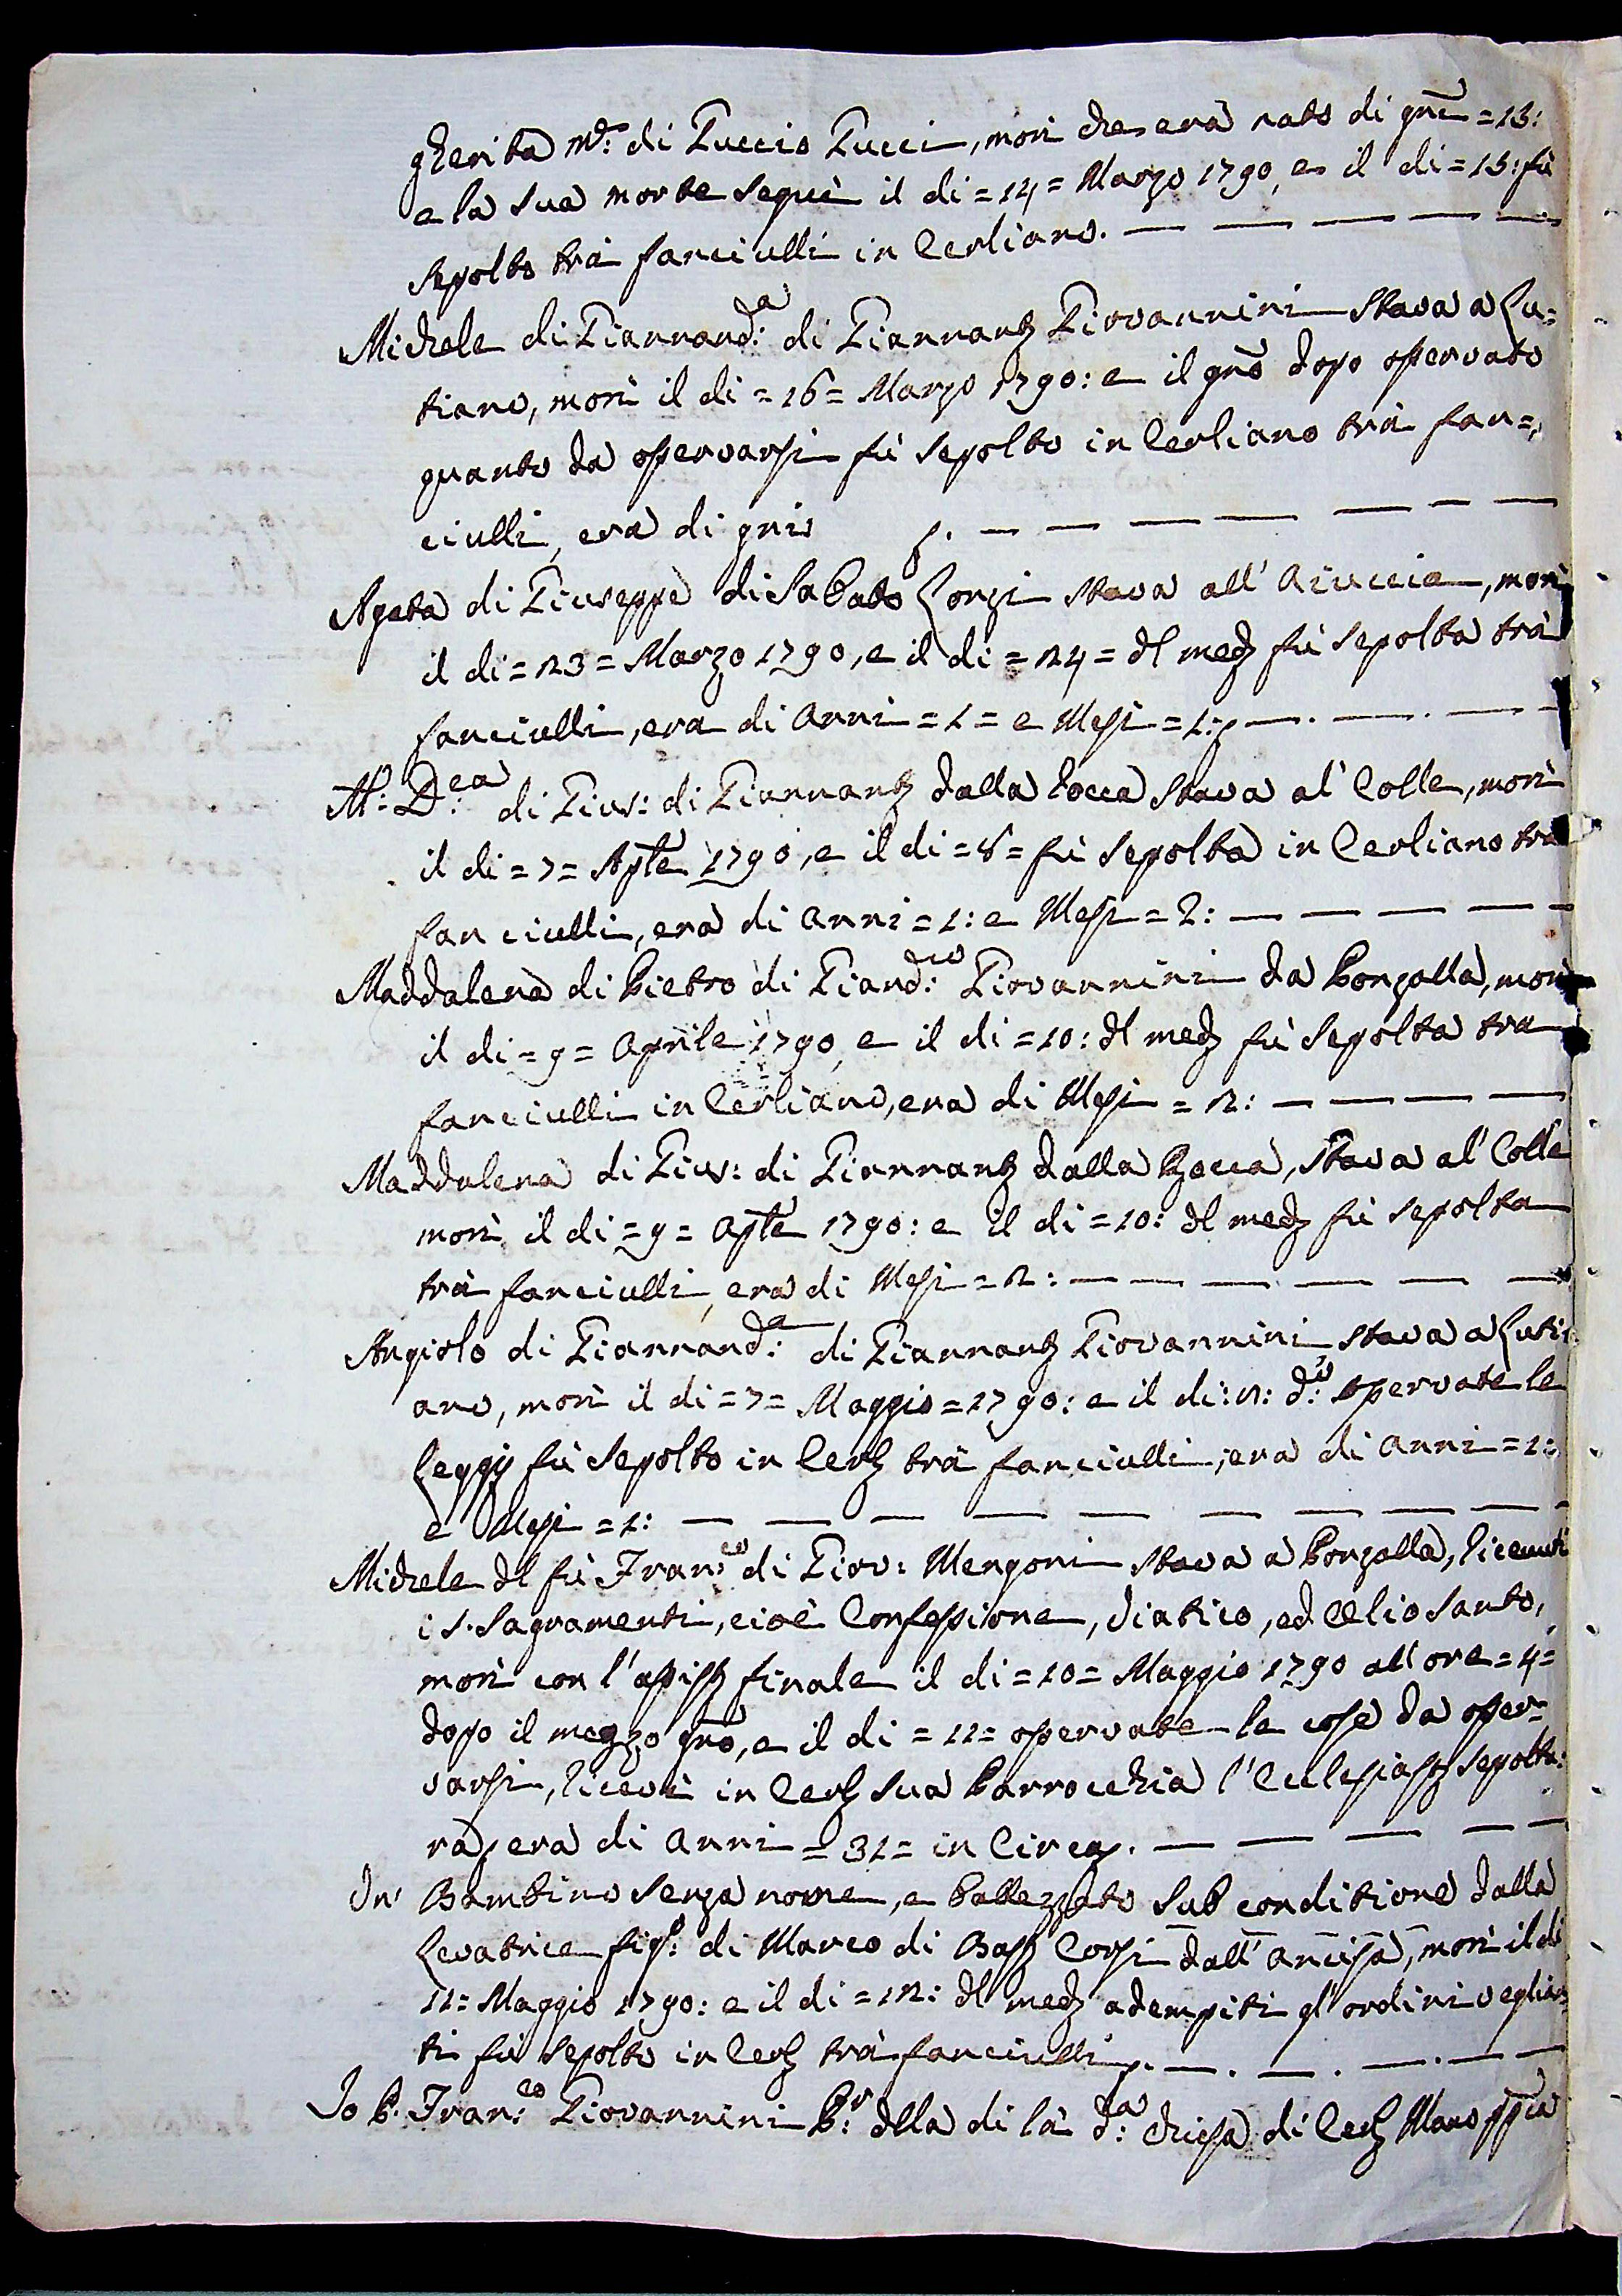 gherita m:e di Puccio Pucci, morì che era nato di gni =13:
e la sua morte seguì il di =14= Marzo 1790, e il di =15: fù
sepolto trà fanciulli in Cerliano. — — — — —
Michele di Giannand:a di Giannant Giovannini stava a Lu=
tiano, morì il di =16= Marzo 1790: e il gno dopo osservato
quanto da osservarsi fù sepolto in Cerliano trà fan=
ciulli, era di gni . — — — — — — —
Agata di Giuseppe di Sabato Lorzi stava all' Aiuccia, morì
il di =23= Marzo 1790, e il di =24= dl med fù sepolta trà
fanciulli, era di Anni =1= e Mesi =1: — . — . — —
M:a D:ea di Gius: di Giannant dalla Rocca stava al' Colle, morì
il di =7= Aple 1790, e il di =8= fù sepolta in Cerliano trà
fanciulli, era di Anni =1: e Mesi =2: — — — — —
Maddalena di Pietro di Giand:co Giovannini da Ronzalla, morì
il di =9= Aprile 1790, e il di =10: dl med fù sepolta tra
fanciulli in Cerliano, era di Mesi =2: — — — —
Maddalena di Gius: di Giannant dalla Rocca, stava al' Colle
morì il di =9= Aple 1790: e il di =10: dl med fù sepolta
trà fanciulli, era di Mesi =2: — — — — — —
Angiolo di Giannand:a di Giannant Giovannini stava a Luti=
ano, morì il di =7= Maggio =1790: e il di: 8: d:o osservate le
Leggj fù sepolto in Cerl trà fanciulli, era di Anni =1:
e Mesi =1: — — — — — — — — —
Michele dl fù Fran:co di Giov: Mengoni stava a Ronzalla, ricevuti
i S. Sagramenti, cioè Confessione, Viatico, ed Oelio Santo,
morì con l'assist finale il di =10= Maggio 1790 all'ore =4=
dopo il mezzo gno, e il di =11= osservate le cose da osser=
varsi, ricevè in Cerl sua Parrocchia l'Ecclesiast sepoltu:
ra, era di Anni =31= in Circa. — — — — —
Un' Bambino senza nome, e battezzato sub conditione dalla
Levatrice fig:o di Marco di Bast Corsi dall' Ancisa, morì il di
11= Maggio 1790: e il di =12: dl med adempiti gl'ordini veglian
ti fù sepolto in Cerl trà fanciulli. — . — . — . — —
Io P. Fran:co Giovannini P:r dlla di là d:a Chiesa di Cerl Mano ppia